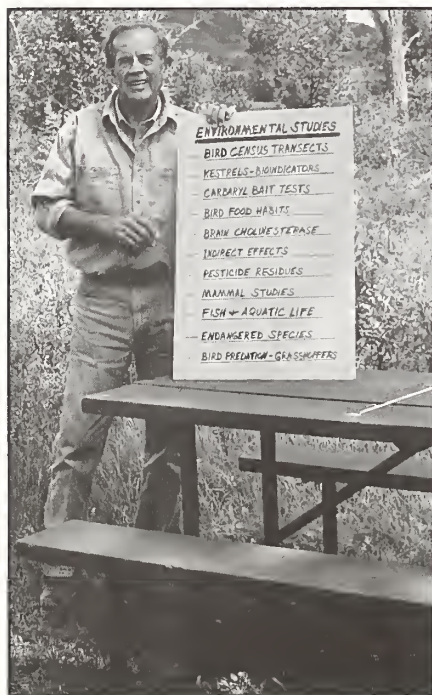 ENVIRONMENTAL STUDIES
- BIRD CENSUS TRANSECTS
- KESTRELS-BIOINDICATORS
- CARBARYL BAIT TESTS
- BIRD FOOD HABITS
- BRAIN CHOLINESTERASE
- INDIRECT EFFECTS
- PESTICIDE RESIDUES
- MAMMAL STUDIES
- FISH + AQUATIC LIFE
- ENDANGERED SPECIES
- BIRD PREDATION-GRASSHOPPERS